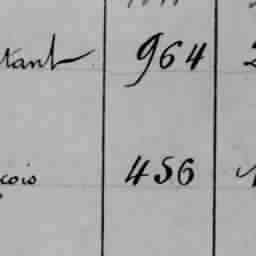 tant 964
çois 456